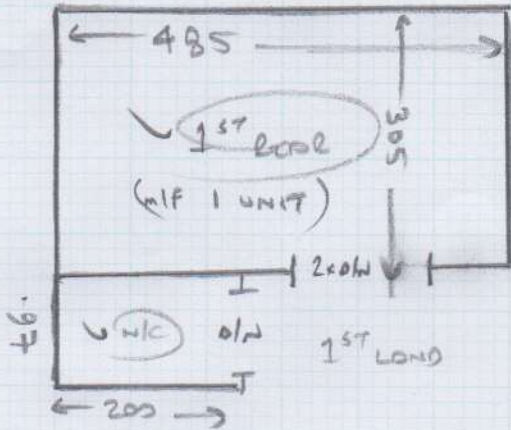 485
305
1ST RCDR
(M/F 1 UNIT)
2xD/W
.97
N/C
D/W
1ST LAND
200